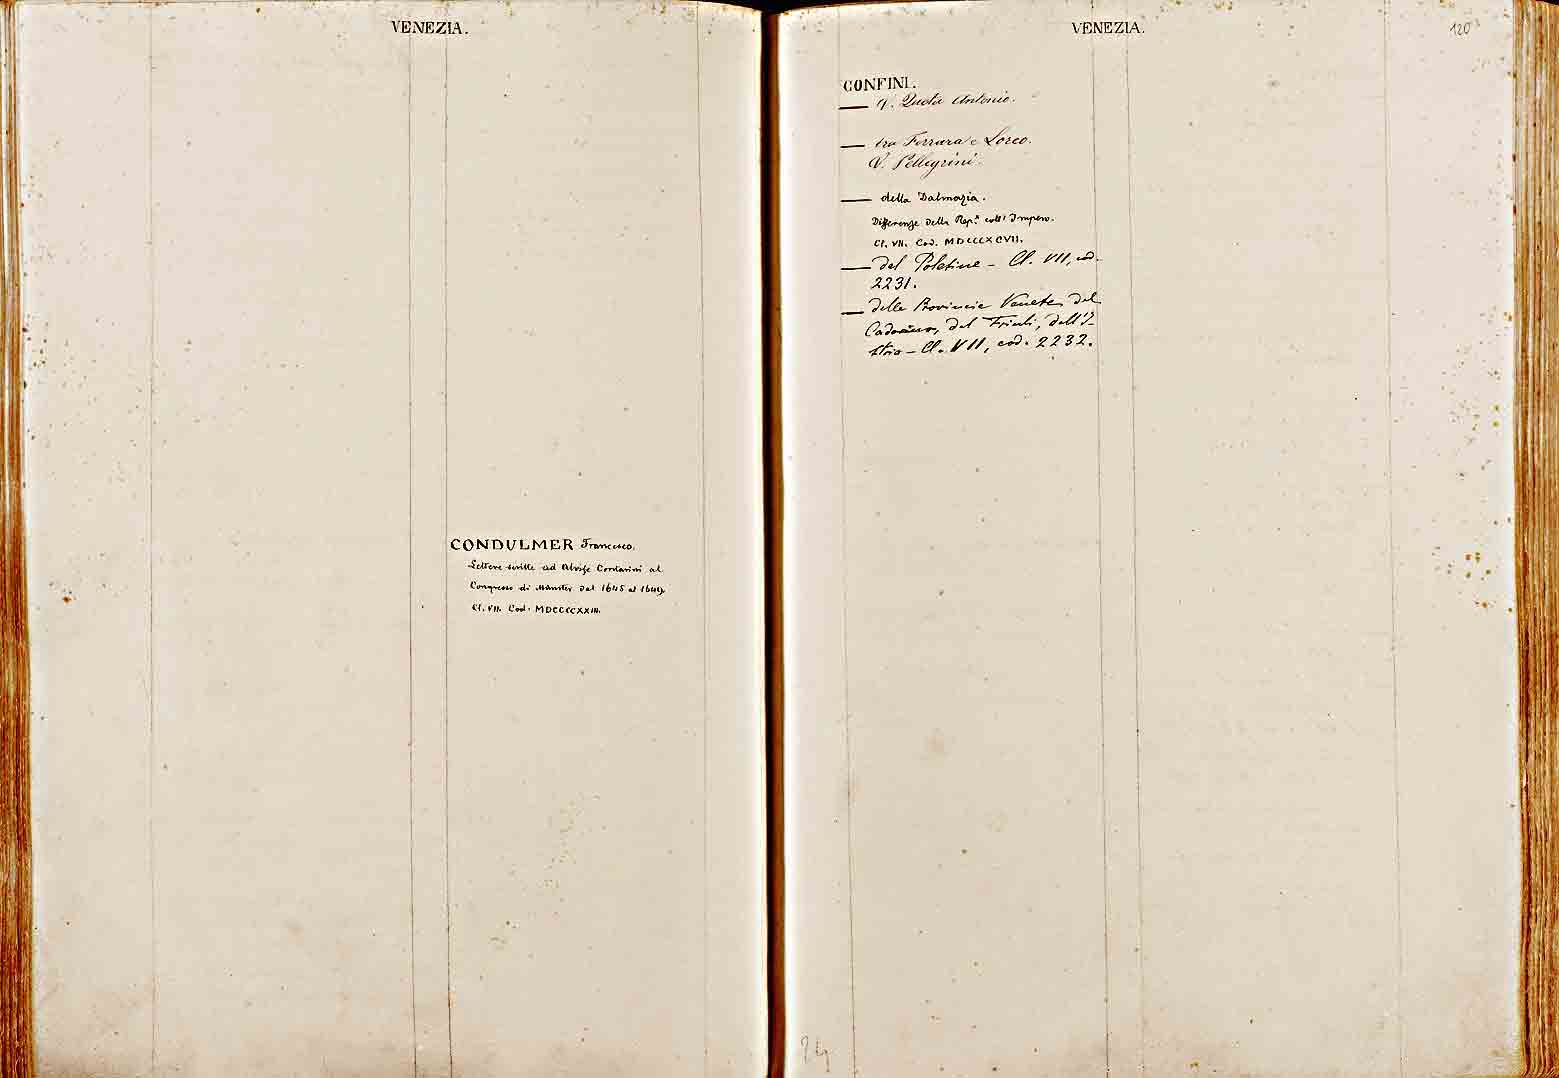 VENEZIA.
CONDULMER Francesco.
Lettere scritte ad Alvise Contarini al
Congresso di Münster dal 1645 al 1649.
Cl. VII. Cod. MDCCCCXXIII.
VENEZIA.
120
CONFINI.
— Antonio.
— tra Ferrara e Loreo.
V. Pellegrini.
— della Dalmazia.
Differenze della Rep.a coll' Impero.
Cl. VII. Cod. MDCCCXCVII.
— del Polesine – Cl. VII, cod.
2231.
— delle Provincie Venete del
del Friuli, dell'I-
stria – Cl. VII, cod. 2232.